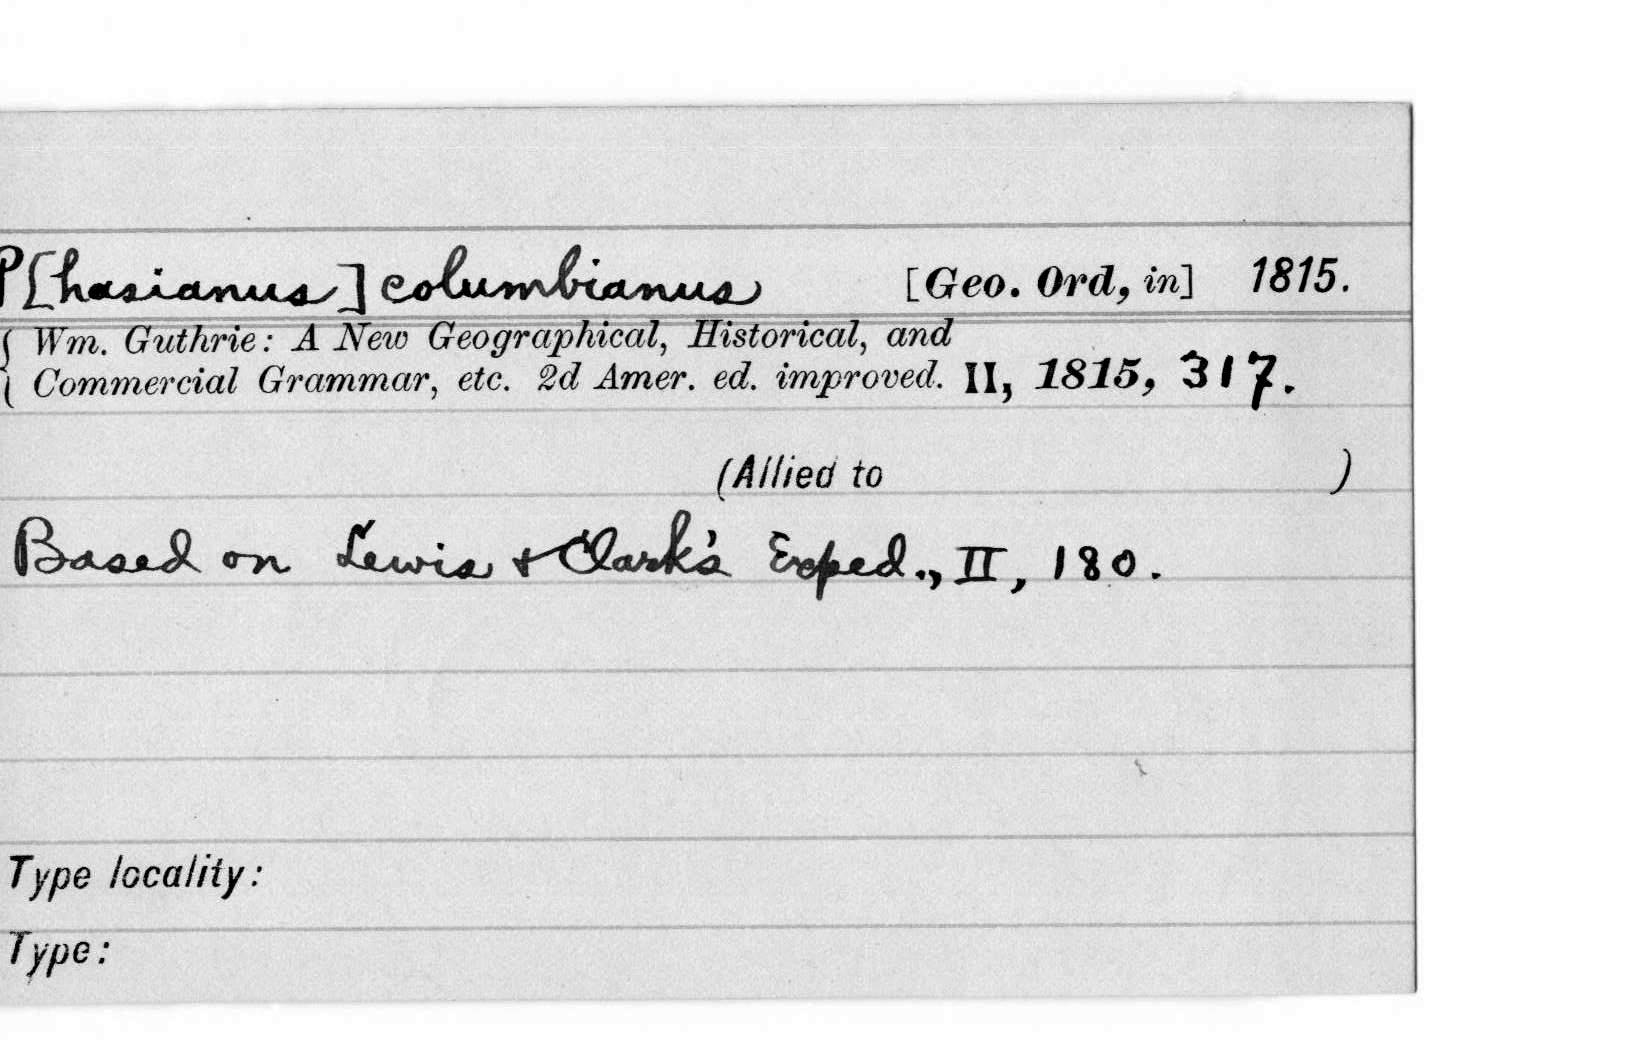 P[hasianus] columbianus [Geo. Ord, in] 1815.
Wm. Guthrie: A New Geographical, Historical, and
Commercial Grammar, etc. 2d Amer. ed. improved. II, 1815, 317.
(Allied to )
Based on Lewis & Clark's Exped., II, 180.
Type locality:
Type: